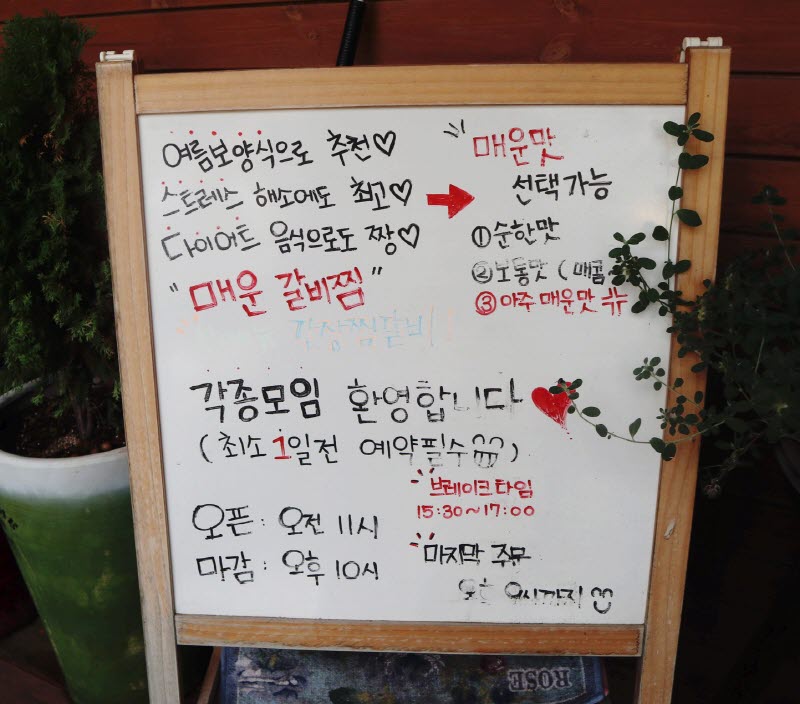 여름보양식으로 추천♡
스트레스 해소에도 최고♡
다이어트 음식으로도 짱♡
"매운 갈비찜"
매운맛
선택가능
①순한맛
②보통맛 (매콤
③아주 매운맛 ㅠ
각종모임 환영합니다
(최소 1일전 예약필수)
브레이크타임
15:30~17:00
오픈: 오전 11시
마감: 오후 10시
마지막 주문
ROSE